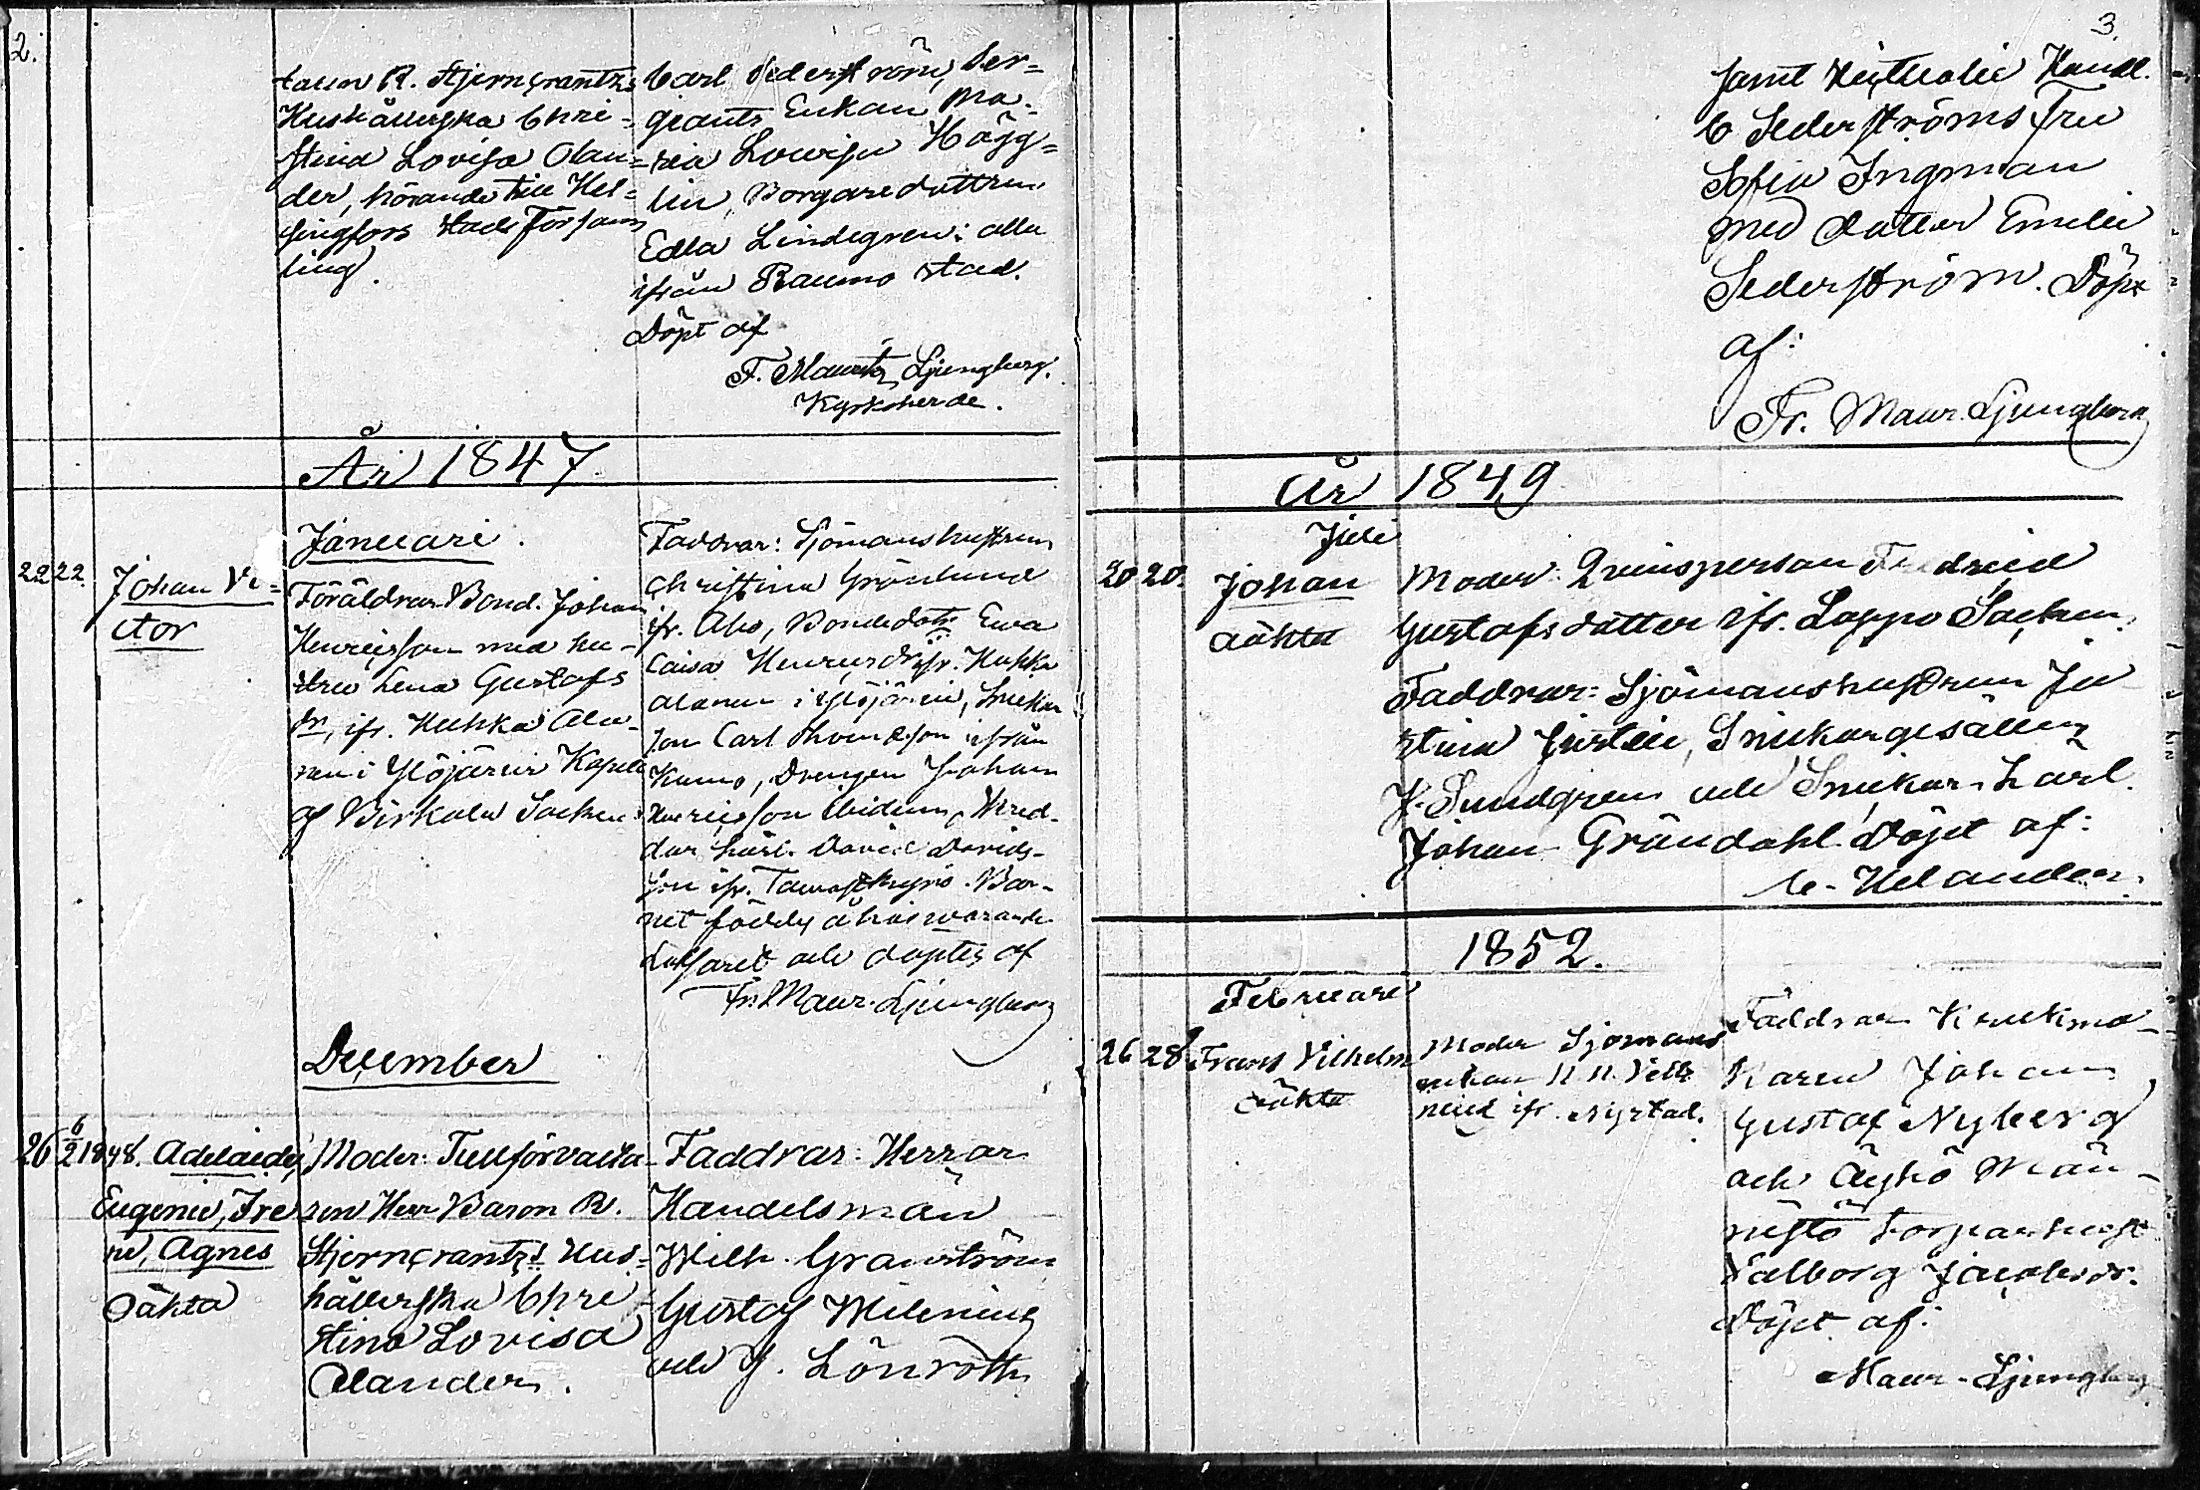 2.
taren R. Stjerncrantz's
Hushållerska Chri=
stina Lovisa Olan=
der, hörande till Hel=
singfors stads Försam
ling.
Carl Sederström, Ser=
geants Enkan Ma=
ria Lovisa Hägg=
lin, Borgaredottren
Edla Lindegren; alla
ifrån Raumo stad.
Döpt af
F. Mauritz Ljungberg.
Kyrkoherde.
År 1847
Januari.
22 22. Johan Vi=
ctor
Föräldrar Bond. Johan
Henricsson med hu-
stru Lena Gustafs
dr, ifr. Kuhka Ala-
nen i Ylöjärvi Kapell
af Birkala Socken.
Faddrar: Sjömanshustrun
Christina Grönlund
ifr. Abo, Bondedotr Ewa
Caisa Henricsdr ifr. Kuhka
alanen i Ylöjärvi,
son Carl ifrån
Kumo, Drengen Johan
Henricsson ibidem,
David Davids-
son ifr. Tawastkyro. Bar-
net föddes å härvarande
Lassaret och döptes af
Fr. Maur. Ljungberg
December
26 6/2 1848. Adelaide,
Eugenie, Ire
ne, Agnes
Oäkta
Moder: Tullförvalta-
ren Herr Baron R.
Stjerncrantz's Hus=
hållerska Chri
stina Lovisa
Olander.
Faddrar: Herrar
Handelsmän
Wilh. Granström
Gustaf Milenius
och J. Lönroth
3.
samt Handl.
C Sederströms Fru
Sofia Ingman
med dotter Emelie
Sederström. Döpt
af:
Fr. Maur. Ljungberg
År 1849
Juli
20 20. Johan
oäkta
Moder: Qvinsperson
Gustafsdotter ifr. Loppo Socken.
Faddrar: Sjömanshustrun Ju
stina Justin, Snickargesällen
K. Sundgren och Snickar. Karl
Johan Gröndahl. Döpt af:
C. Helander.
1852.
Februari
26 28 Frans Vilhelm
oäkta
Moder Sjömans
enkan N. N. Vilh
ifr. Nystad.
Faddrar Krukma-
karen Johan
Gustaf Nyberg
och Äyhö Män-
nistö Torparhust
Valborg Jacobsdr.
Döpt af:
Maur. Ljungberg